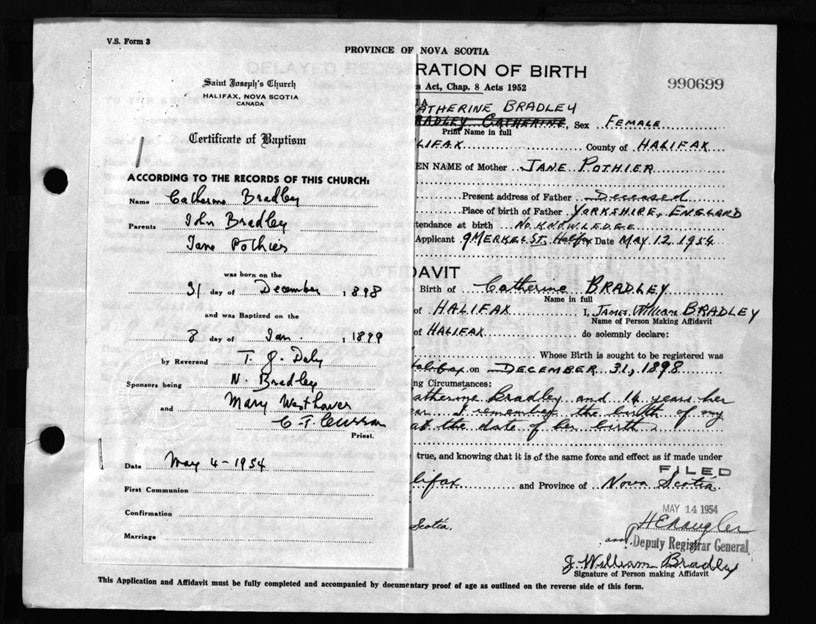 V.S. Form 3
PROVINCE OF NOVA SCOTIA
RATION OF BIRTH
s Act, Chap. 8 Acts 1952
990699
Saint Joseph's Church
HALIFAX, NOVA SCOTIA
CANADA
Certificate of Baptism
ACCORDING TO THE RECORDS OF THIS CHURCH:
Name Catherine Bradley
Parents John Bradley
Jane Pothier
was born on the
31 day of December, 1898
and was Baptized on the
8 day of Jan., 1899
by Reverend T. J. Daly
Sponsors being N. Bradley
and Mary Westhaver
Priest.
Date May 4-1954
First Communion
Confirmation
Marriage
ATHERINE BRADLEY
RADLEY CATHERINE, Sex FEMALE
Print Name in full
LIFAX County of HALIFAX
EN NAME of Mother JANE POTHIER
Present address of Father Deceased
Place of birth of Father YORKSHIRE, ENGLAND
tendance at birth NO. KNOWLEDGE
Applicant 9 MERKEL ST. Halifax Date MAY 12 1954
DAVIT
Birth of Catherine BRADLEY
Name in full
of HALIFAX I, James William BRADLEY
Name of Person Making Affidavit
of HALIFAX do solemnly declare:
Whose Birth is sought to be registered was
Halifax on DECEMBER 31, 1898
ng Circumstances:
atherine Bradley and 14 years her
I remember the birth of my
at the date of her birth.
true, and knowing that it is of the same force and effect as if made under
FILED
lifax and Province of Nova Scotia
MAY 14 1954
Scotia.
Deputy Registrar General
J. William Bradley
Signature of Person making Affidavit
This Application and Affidavit must be fully completed and accompanied by documentary proof of age as outlined on the reverse side of this form.